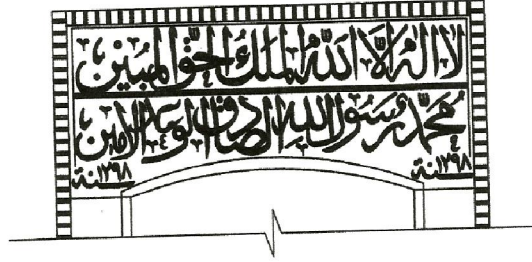 لا اله الا الله الملك الحق المبين
محمد رسول الله الصادق الوعد الامين
سنة ١٢٩٨ سنة ١٢٩٨